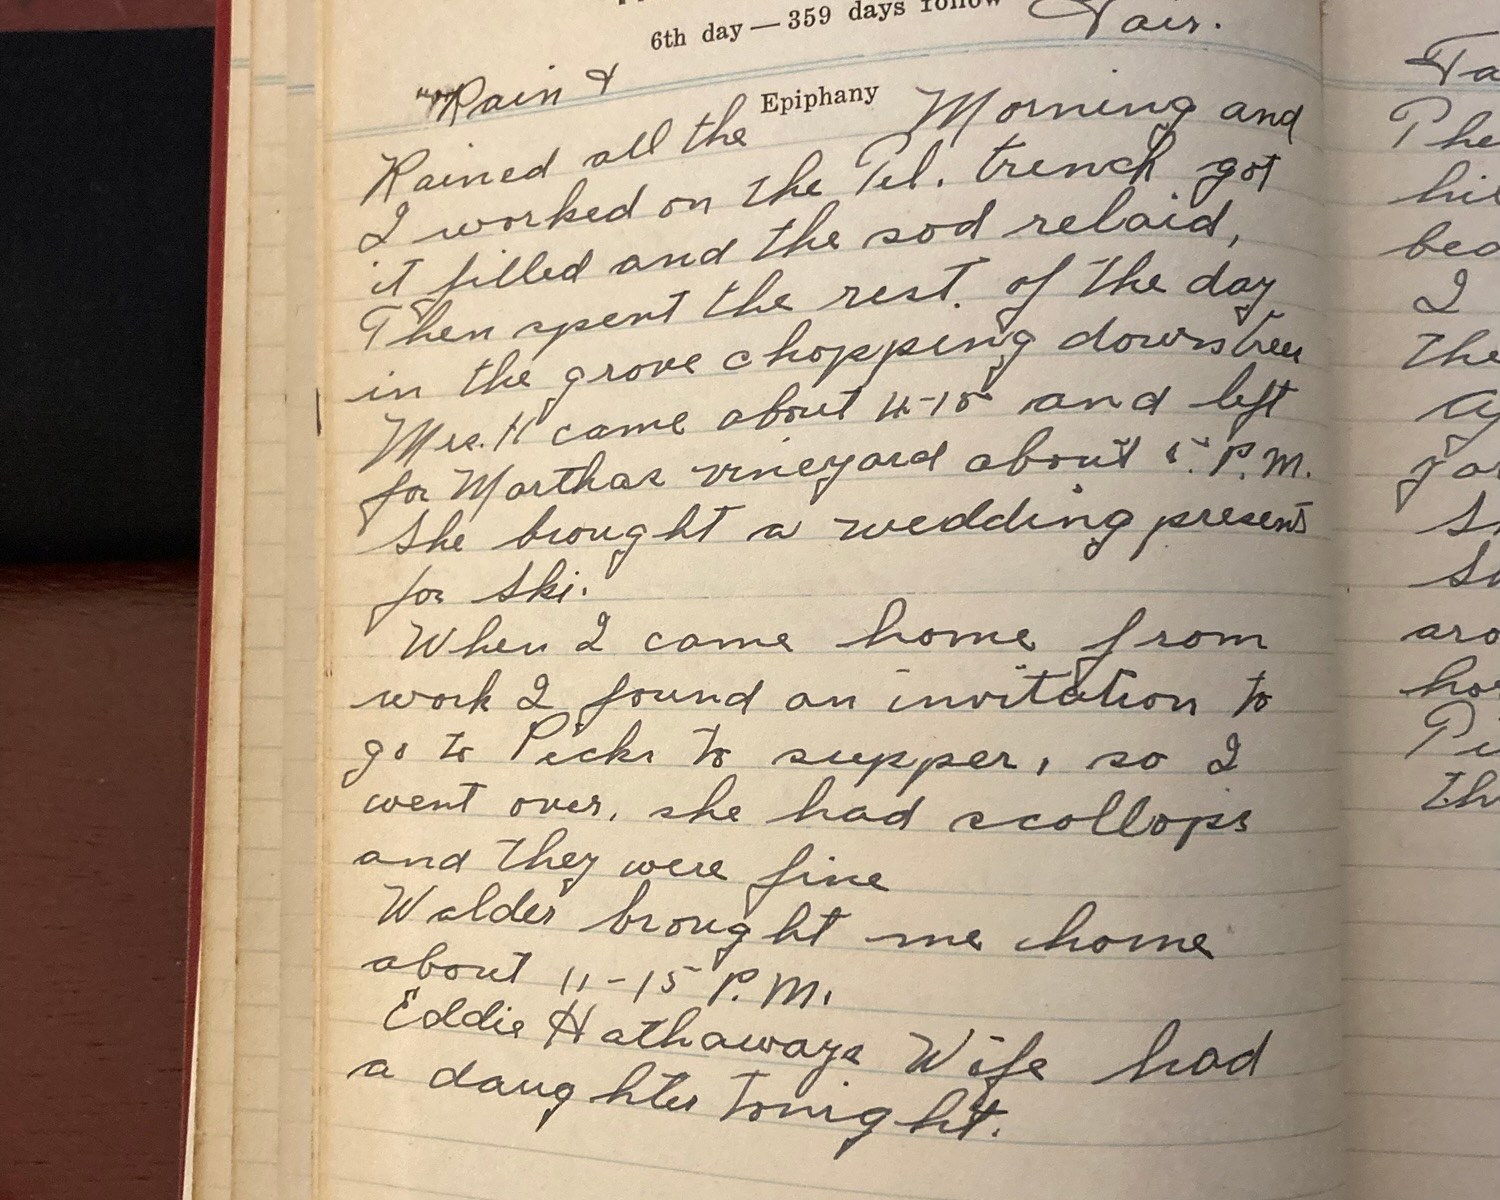 6th day — 359 days follow
Fair.
Rain &
Epiphany
Rained all the Morning and
I worked on the Tel. trench got
it filled and the sod relaid,
Then spent the rest of the day
in the grove chopping down trees
Mrs. H came about 4-15 and left
for Marthas vineyard about 5. P.M.
She brought a wedding present
for Ski.
When I came home from
work I found an invitation to
go to Picks to supper, so I
went over, she had scollops
and they were fine
Walder brought me home
about 11-15 P.M.
Eddie Hathaways Wife had
a daughter tonight.
The
his
I
the